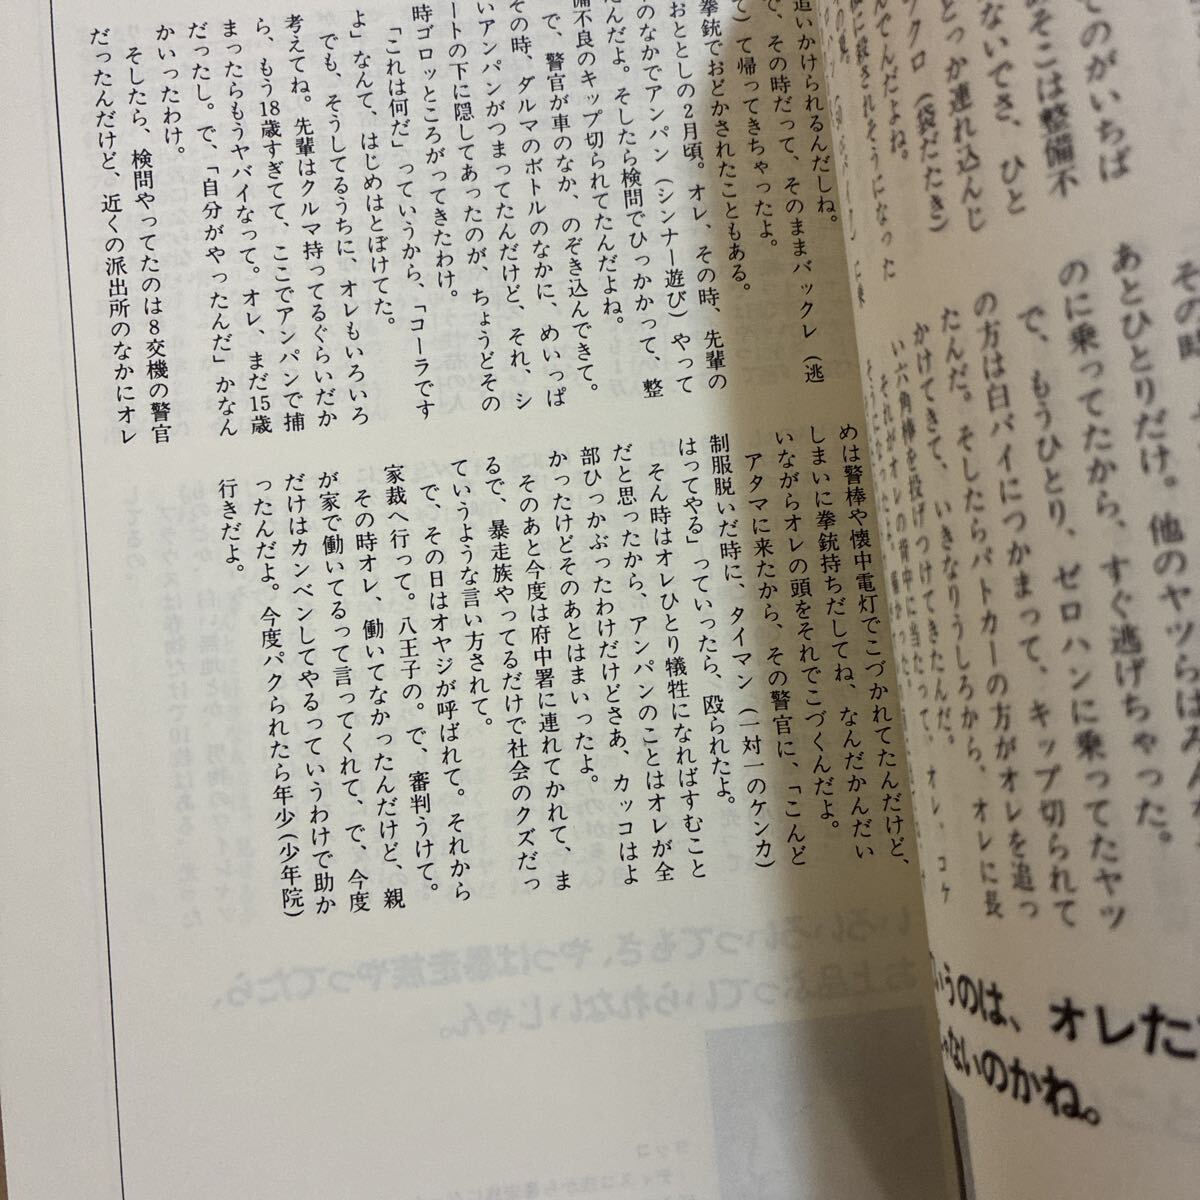 てのがいちば
そこは整備不
ないでさ、ひと
とっか連れ込んじ
クロ（袋だたき）
んでんだよね。
に殺されそうになった
その時
あとひとりだけ。他のヤツらはみん
のに乗ってたから、すぐ逃げちゃった。
で、もうひとり、ゼロハンに乗ってたヤツ
の方は白バイにつかまって、キップ切られて
たんだ。そしたらパトカーの方がオレを追っ
かけてきて、いきなりうしろから、オレに長
い六角棒を投げつけてきたんだ。
それがオレの背中に当たって、オレ、コケ
うのは、オレた
ないのかね。
追いかけられるんだしね。
で、その時だって、そのままバックレ（逃
て）て帰ってきちゃったよ。
拳銃でおどかされたこともある。
おととしの2月頃。オレ、その時、先輩の
のなかでアンパン（シンナー遊び）やって
たんだよ。そしたら検問でひっかかって、整
備不良のキップ切られてたんだよね。
で、警官が車のなか、のぞき込んできて。
その時、ダルマのボトルのなかに、めいっぱ
いアンパンがつまってたんだけど、それ、シ
ートの下に隠してあったのが、ちょうどその
時ゴロッところがってきたわけ。
「これは何だ」っていうから、「コーラです
よ」なんて、はじめはとぼけてた。
でも、そうしてるうちに、オレもいろいろ
考えてね。先輩はクルマ持ってるぐらいだか
ら、もう18歳すぎてて、ここでアンパンで捕
まったらもうヤバイなって。オレ、まだ15歳
だったし。で、「自分がやったんだ」かなん
かいったわけ。
そしたら、検問やってたのは8交機の警官
だったんだけど、近くの派出所のなかにオレ
めは警棒や懐中電灯でこづかれてたんだけど、
しまいに拳銃持ちだしてね、なんだかんだい
いながらオレの頭をそれでこづくんだよ。
アタマに来たから、その警官に、「こんど
制服脱いだ時に、タイマン（一対一のケンカ）
はってやる」っていったら、殴られたよ。
そん時はオレひとり犠牲になればすむこと
だと思ったから、アンパンのことはオレが全
部ひっかぶったわけだけどさあ、カッコはよ
かったけどそのあとはまいったよ。
そのあと今度は府中署に連れてかれて、ま
るで、暴走族やってるだけで社会のクズだっ
ていうような言い方されて。
で、その日はオヤジが呼ばれて。それから
家裁へ行って。八王子の。で、審判うけて。
その時オレ、働いてなかったんだけど、親
が家で働いてるって言ってくれて、で、今度
だけはカンベンしてやるっていうわけで助か
ったんだよ。今度パクられたら年少（少年院）
行きだよ。